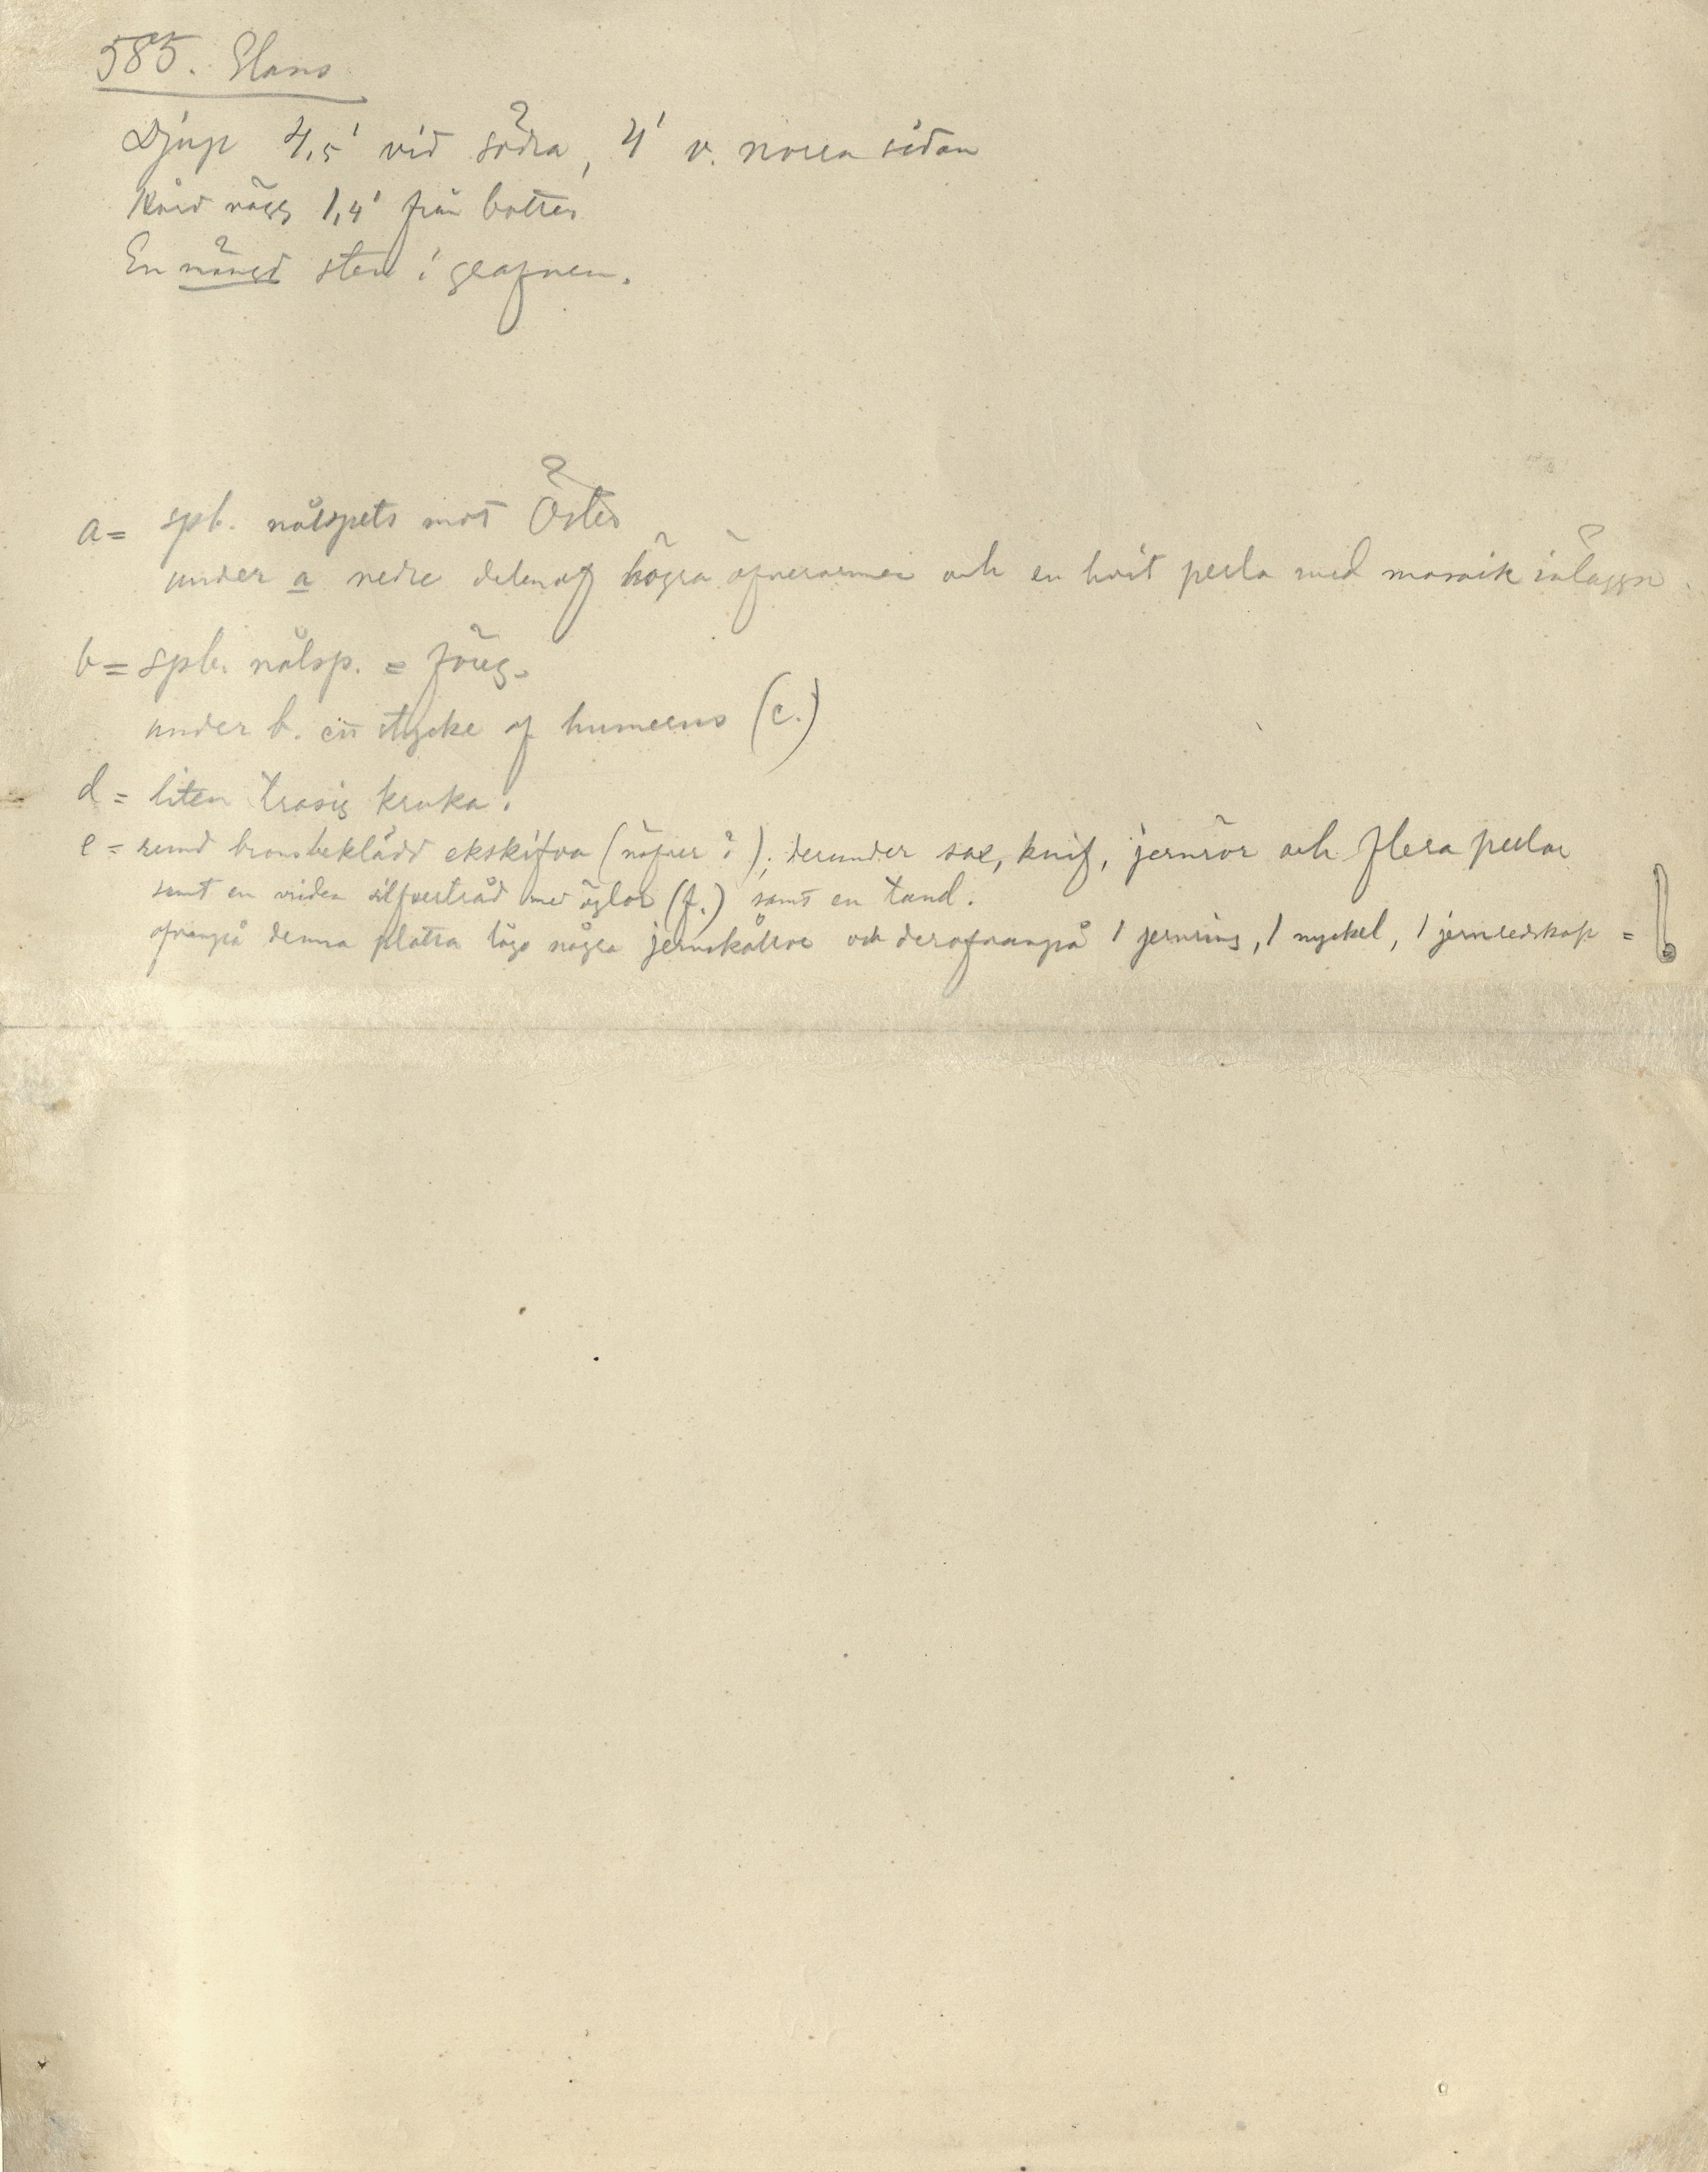 585. Hans
Djup 4,5' vid södra, 4' v. norra sidan
Hård vägg 1,4' från botten
En mängd sten i grafven.
a = spb. nålspets mot Öster
under a nedre delen af högra öfverarmen och en hvit perla med mosaik inläggn.
b = spb. nålsp. = föreg.
under b. ett stycke af humerus (c.)
d = liten trasig kruka.
e = rund bronsbeklädd ekskifva (näfver ?); derunder sax, knif, jernrör och flera perlor
samt en vriden silfvertråd med öglor (f.) samt en tand.
ofvanpå denna platta lågo några jernskållror och derofvanpå 1 jernring, 1 nyckel, 1 jernredskap =